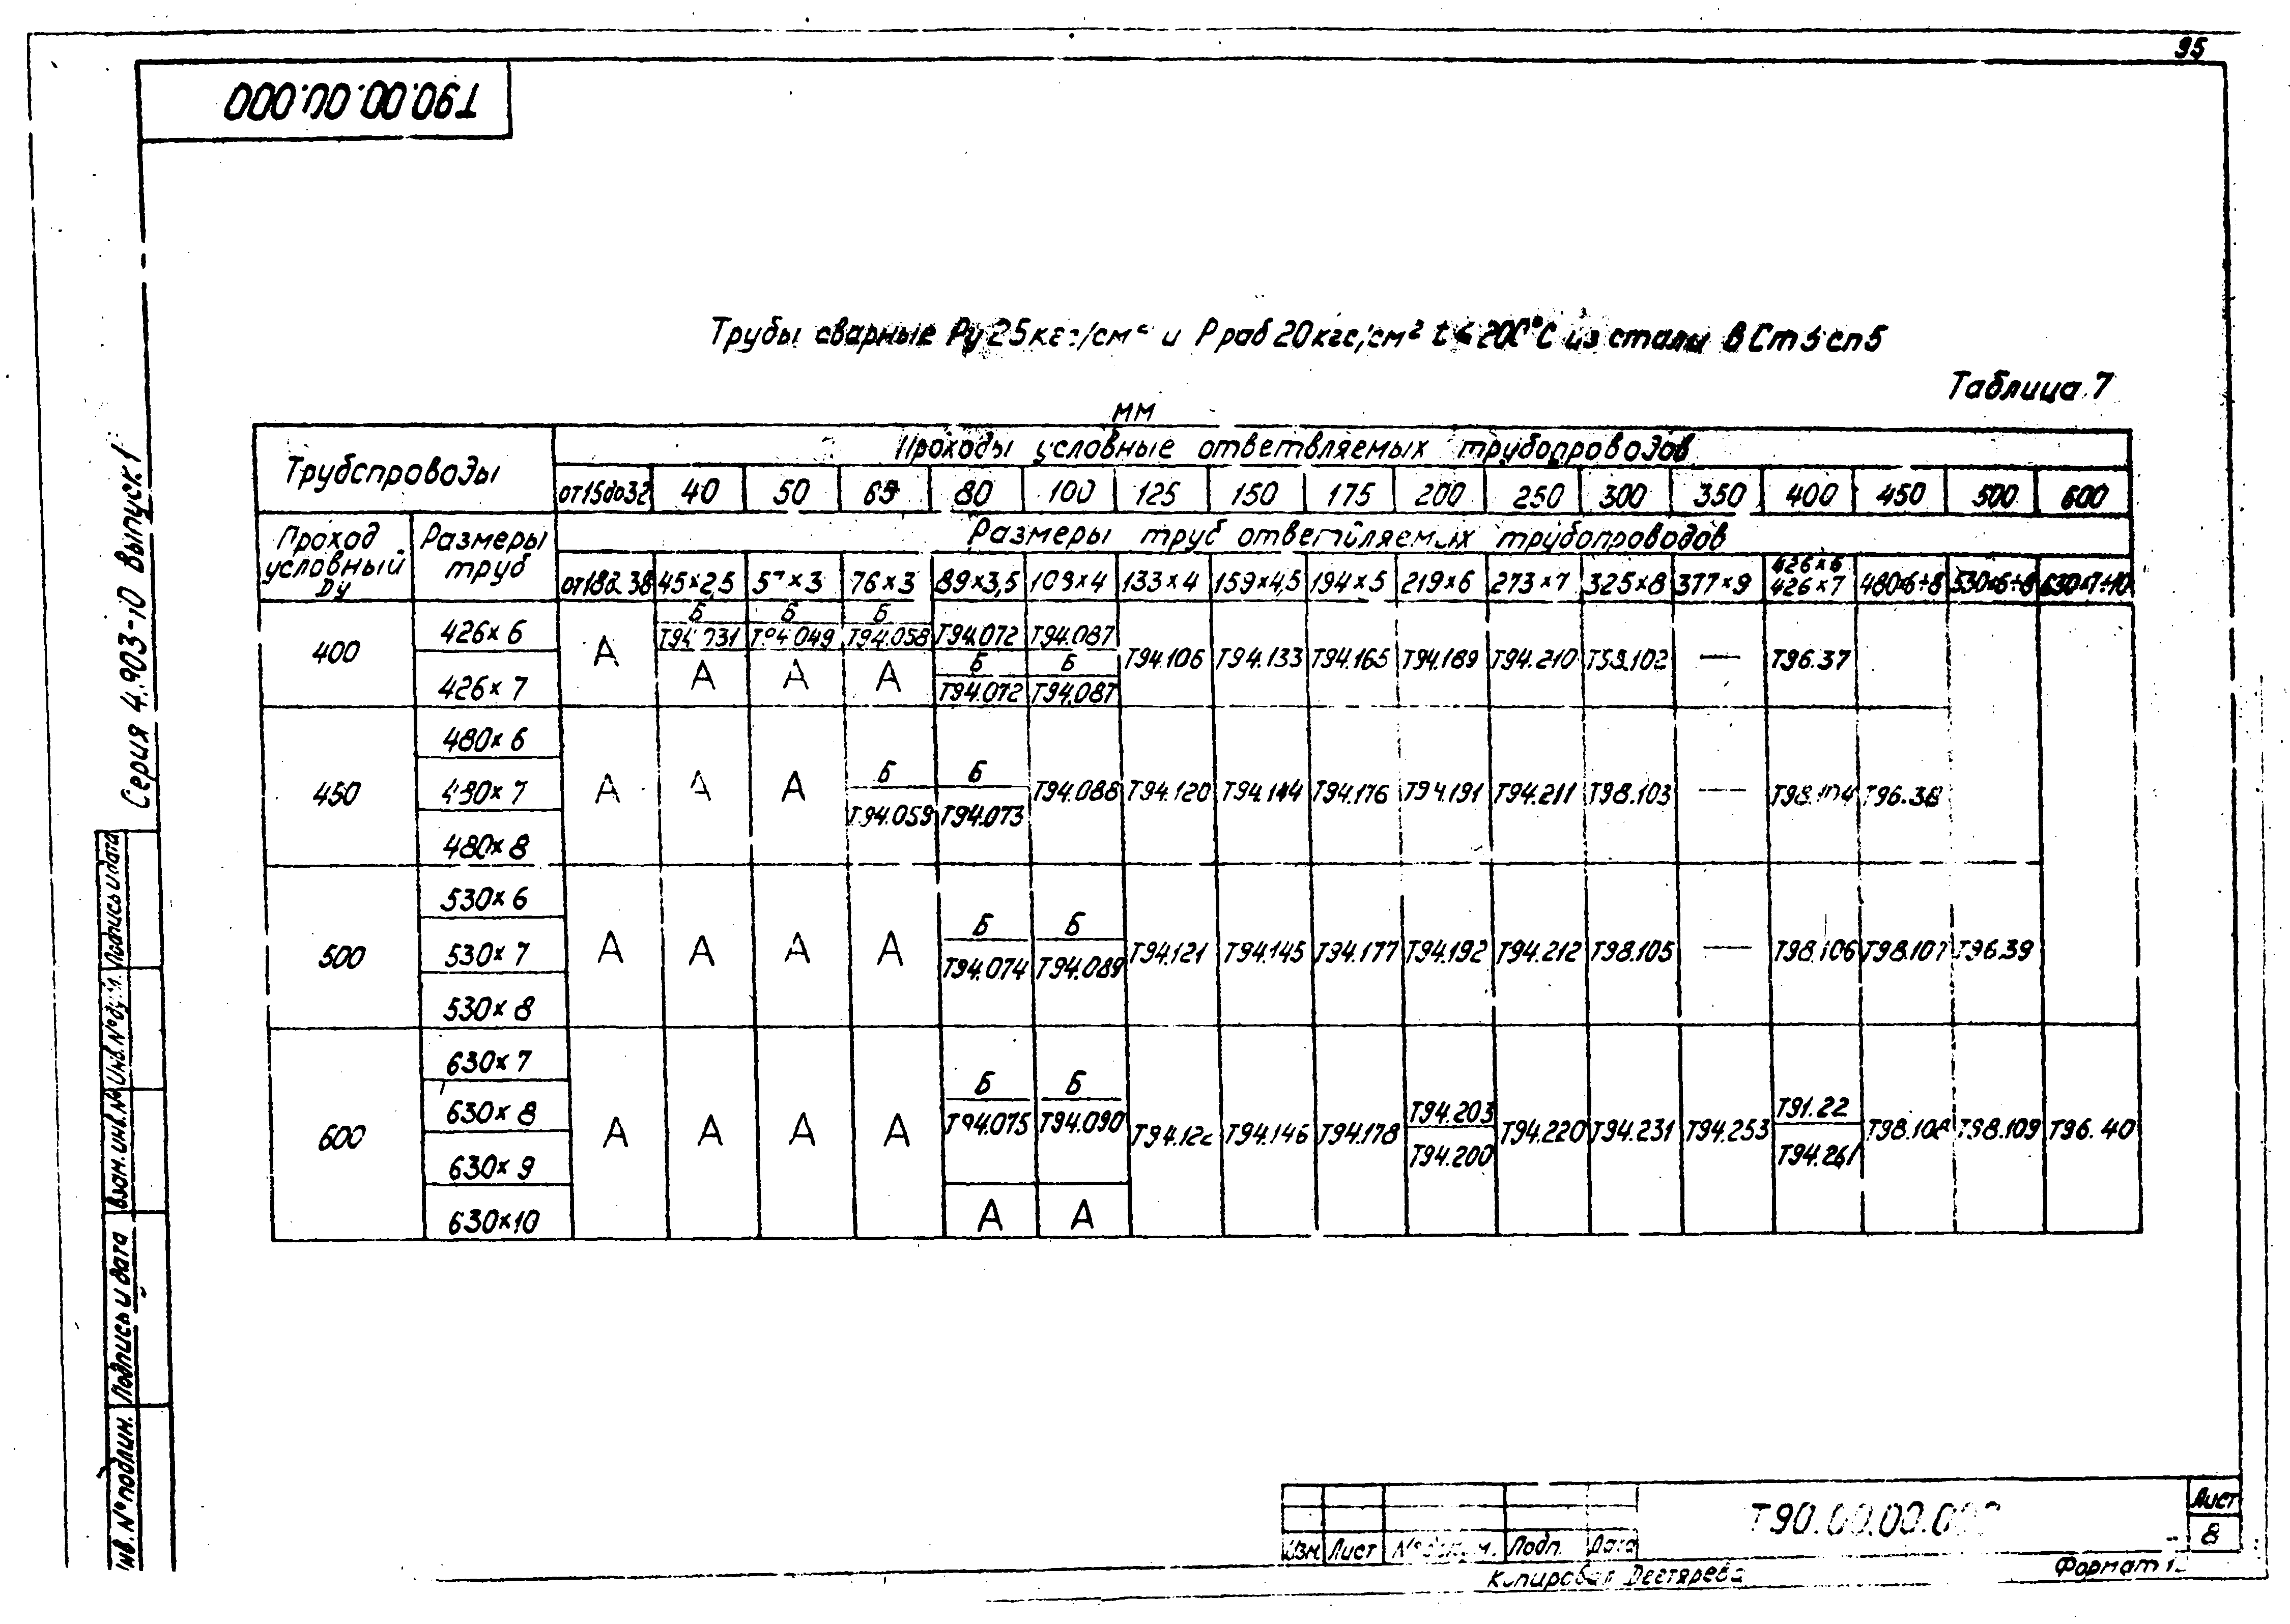 95
Т90.00.00.000
Серия 4.903-10 Выпуск 1
Трубы сварные Ру 25 кгс/см² и Рраб 20 кгс/см² t ≤ 200°С из стали ВСт3сп5
Таблица 7
мм
Трубопроводы
Проходы условные ответвляемых трубопроводов
от 15 до 32 40 50 65 80 100 125 150 175 200 250 300 350 400 450 500 600
Проход условный Ду
Размеры труб
Размеры труб ответвляемых трубопроводов
от 18 д. 38 45×2,5 57×3 76×3 89×3,5 108×4 133×4 159×4,5 194×5 219×6 273×7 325×8 377×9 426×6 426×7 480×6÷8 530×6÷8 630×7÷10
400
426×6
426×7
А
Б Т94.031 А
Б Т94.049 А
Б Т94.058 А
Т94.072 Б Т94.072
Т94.087 Б Т94.087
Т94.106 Т94.133 Т94.165 Т94.189 Т94.210 Т98.102 — Т96.37
450
480×6
480×7
480×8
А А А
Б Т94.059
Б Т94.073
Т94.088 Т94.120 Т94.144 Т94.176 Т94.191 Т94.211 Т98.103 — Т98.104 Т96.38
500
530×6
530×7
530×8
А А А А
Б Т94.074
Б Т94.089
Т94.121 Т94.145 Т94.177 Т94.192 Т94.212 Т98.105 — Т98.106 Т98.107 Т96.39
600
630×7
630×8
630×9
630×10
А А А А
Б Т94.075 А
Б Т94.090 А
Т94.122 Т94.146 Т94.178
Т94.203 Т94.200
Т94.220 Т94.231 Т94.253
Т91.22 Т94.261
Т98.108 Т98.109 Т96.40
Инв. № подлин.
Подпись и дата
Взам. инв. №
Инв. № дубл.
Подпись и дата
Изм Лист № докум. Подп. Дата
Т90.00.00.000
Лист
8
Копировал Дегтярева
Формат